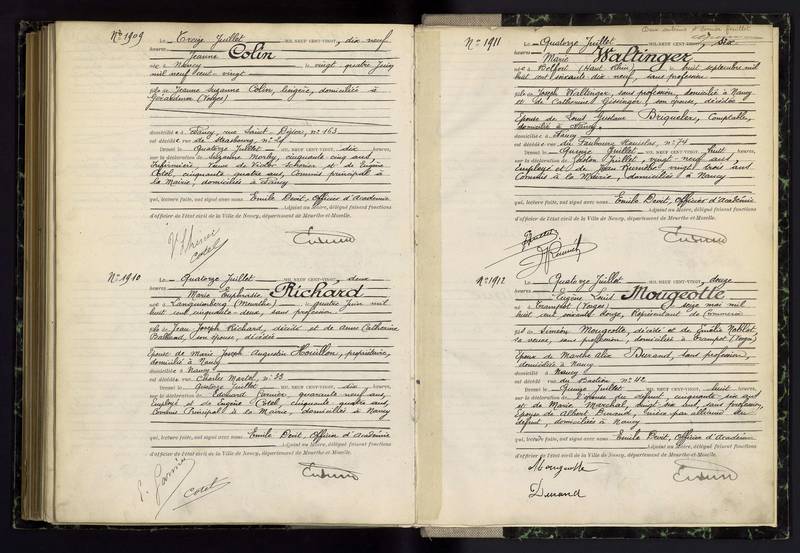 N° 1909
Le Treize Juillet MIL NEUF CENT-VINGT, dix neuf
heures
Jeanne Colin
né e à Nancy le vingt quatre Juin
mil neuf cent vingt
fille de Jeanne Suzanne Colin, lingère, domiciliée à
Gérardmer (Vosges)
domicilié e à Nancy, rue Saint-Dizier, n° 163
est décédé e rue de Strasbourg, n°
Dressé le Quatorze Juillet MIL NEUF CENT-VINGT, dix heures,
sur la déclaration de cinquante cinq ans,
Infirmière, Veuve de Victor et de Eugène
Cotel, cinquante quatre ans, Commis principal à
la Mairie, domiciliés à Nancy
qui, lecture faite, ont signé avec nous Emile Devit, Officier d'Académie
Adjoint au Maire, délégué faisant fonctions
d'officier de l'état civil de la Ville de Nancy, département de Meurthe-et-Moselle.
Cotel
N° 1910
Le Quatorze Juillet MIL NEUF CENT-VINGT, deux
heures
Marie Euphrasie Richard
né e à (Meurthe) le quatre Juin mil
huit cent cinquante-deux, sans profession
fille de Jean Joseph Richard, décédé et de Anne Catherine
son épouse, décédée
Epouse de Marie Joseph Augustin Houillon, propriétaire,
domicilié à Nancy
domicilié e à Nancy
est décédé e rue Charles Martel, n° 33
Dressé le Quatorze Juillet MIL NEUF CENT-VINGT, dix heures,
sur la déclaration de Edouard quarante neuf ans,
Employé et de Eugène Cotel, cinquante quatre ans,
Commis Principal à la Mairie, domiciliés à Nancy
qui, lecture faite, ont signé avec nous Emile Devit, Officier d'Académie
Adjoint au Maire, délégué faisant fonctions
d'officier de l'état civil de la Ville de Nancy, département de Meurthe-et-Moselle.
Cotel
N° 1911
Le Quatorze Juillet MIL NEUF CENT-VINGT, dix
heures
Marie Waltinger
né e à Belfort (Haut Rhin) le huit septembre mil
huit cent soixante dix neuf, sans profession
fille de Joseph Waltinger, sans profession, domicilié à Nancy
et de Catherine Gissinger, son épouse, décédée
Epouse de Louis Gustave Briqueler, Comptable,
domicilié à Nancy
domicilié e à Nancy
est décédé e rue du Faubourg n° 74
Dressé le Quinze Juillet MIL NEUF CENT-VINGT, huit heures,
sur la déclaration de Gaston vingt-neuf ans,
Employé et de Jean vingt trois ans,
Commis à la Mairie, domiciliés à Nancy
qui, lecture faite, ont signé avec nous Emile Devit, Officier d'Académie
Adjoint au Maire, délégué faisant fonctions
d'officier de l'état civil de la Ville de Nancy, département de Meurthe-et-Moselle.
N° 1912
Le Quatorze Juillet MIL NEUF CENT-VINGT, douze
heures
Eugène Louis Mougeotte
né à (Vosges) le seize mai mil
huit cent soixante douze, Représentant de Commerce
fils de Siméon Mougeotte, décédé et de Emélie Noblot,
sa veuve, sans profession, domiciliée à (Vosges)
Epoux de Marthe Alix Durand, sans profession,
domiciliée à Nancy
domicilié à Nancy
est décédé rue du Bastion n° 42
Dressé le Quinze Juillet MIL NEUF CENT-VINGT, huit heures,
sur la déclaration de du défunt, cinquante six ans
et de Marie sans profession,
Epouse de Albert Durand, par alliance du
défunt, domiciliés à Nancy
qui, lecture faite, ont signé avec nous Emile Devit, Officier d'Académie
Adjoint au Maire, délégué faisant fonctions
d'officier de l'état civil de la Ville de Nancy, département de Meurthe-et-Moselle.
Mougeotte
Durand